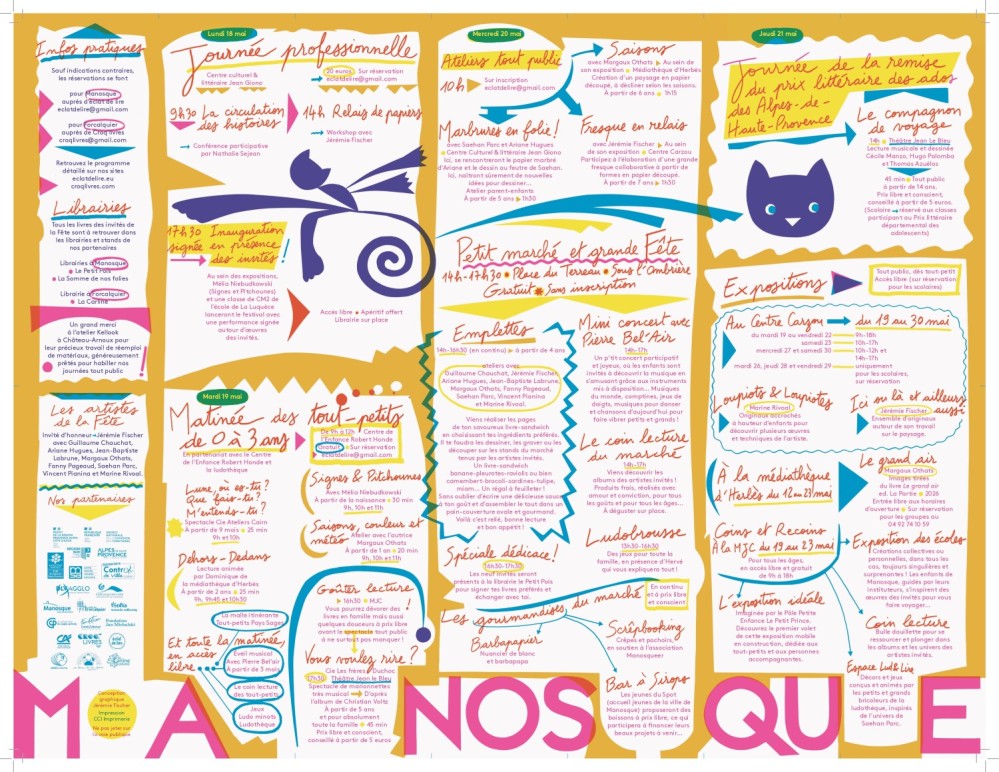 Infos pratiques
Sauf indications contraires,
les réservations se font
pour Manosque
auprès d'éclat de lire
eclatdelire@gmail.com
pour Forcalquier
auprès de Croq'livres
croqlivres@gmail.com
Retrouvez le programme
détaillé sur nos sites
eclatdelire.eu
croqlivres.com
Librairies
Tous les livres des invités de
la Fête sont à retrouver dans
les librairies et stands de
nos partenaires
Librairies à Manosque
• Le Petit Pois
• La Somme de nos folies
Librairie à Forcalquier
• La Carline
Un grand merci
à l'atelier Kelloak
à Château-Arnoux pour
leur précieux travail de réemploi
de matériaux, généreusement
prêtés pour habiller nos
journées tout public
!
Les artistes
de la Fête
Invité d'honneur→Jérémie Fischer
avec Guillaume Chauchat,
Ariane Hugues, Jean-Baptiste
Labrune, Margaux Othats,
Fanny Pageaud, Saehan Parc,
Vincent Pianina et Marine Rivoal.
Nos partenaires
ALPES
PROVENCE
Contrat
de Ville
dlvAGGLO
Manosque
Fondation
Jan Michalski
CROC
LIVRES
Conception
graphique
Jérémie Fischer
Impression
CCI Imprimerie
Ne pas jeter sur
la voie publique
Lundi 18 mai
Journée professionnelle
Centre culturel &
littéraire Jean Giono
20 euros Sur réservation
eclatdelire@gmail.com
9h30 La circulation
des histoires
→ Conférence participative
par Nathalie Sejean
14h Relais de papiers
→ Workshop avec
Jérémie Fischer
17h30 Inauguration
signée en présence
des invités !
Au sein des expositions,
Mélia Niebudkowski
(Signes et Pitchounes)
et une classe de CM2 de
l'école de La Luquèce
lanceront le festival avec
une performance signée
autour d'œuvres
des invités.
Accès libre • Apéritif offert
Librairie sur place
Mardi 19 mai
Matinée des tout-petits
de 0 à 3 ans
En partenariat avec le Centre
de l'Enfance Robert Honde et
la ludothèque
De 9h à 12h Centre de
l'Enfance Robert Honde
Gratuit Sur réservation
eclatdelire@gmail.com
Lune, où es-tu?
Que fais-tu?
M'entends-tu?
Spectacle Cie Ateliers Cairn
À partir de 9 mois • 25 min
9h et 10h
Dehors-Dedans
Lecture animée
par Dominique de
la médiathèque d'Herbès
À partir de 2 ans • 25 min
9h, 9h45 et 10h30
Signes & Pitchounes
Avec Mélia Niebudkowski
À partir de la naissance • 30 min
9h, 10h et 11h
Saisons, couleur et
météo
Atelier avec l'autrice
Margaux Othats
À partir de 1 an • 20 min
9h, 10h et 11h
Et toute la matinée,
en accès
libre
La malle itinérante
Tout-petits Pays Sages
Éveil musical
Avec Pierre Bel'air
À partir de 3 mois
Le coin lecture
des tout-petits
Jeux
Ludo minots
Ludothèque
Goûter lecture
→ 16h30 • MJC
Vous pourrez dévorer des
livres en famille mais aussi
quelques douceurs à prix libre
avant le spectacle tout public
à ne surtout pas manquer !
!
Vous voulez rire ?
Cie Les frères Duchoc
17h30 Théâtre Jean le Bleu
Spectacle de marionnettes
très musical → D'après
l'album de Christian Voltz
À partir de 5 ans
et pour absolument
toute la famille • 45 min
Prix libre et conscient,
conseillé à partir de 5 euros
Mercredi 20 mai
Ateliers tout public
10h Sur inscription
eclatdelire@gmail.com
Saisons
avec Margaux Othats ▶ Au sein de
son exposition • Médiathèque d'Herbès
Création d'un paysage en papier
découpé, à décliner selon les saisons.
À partir de 6 ans • 1h15
Marbrures en folie!
avec Saehan Parc et Ariane Hugues
• Centre Culturel & Littéraire Jean Giono
Ici, se rencontreront le papier marbré
d'Ariane et le dessin au feutre de Saehan.
Ici, naîtront sûrement de nouvelles
idées pour dessiner...
Atelier parent-enfants
À partir de 5 ans ▶ 1h30
Fresque en relais
avec Jérémie Fischer ▶ Au sein
de son exposition • Centre Carzou
Participez à l'élaboration d'une grande
fresque collaborative à partir de
formes en papier découpé.
À partir de 7 ans ▶ 1h30
Petit marché et grande Fête
14h-17h30 • Place du Terreau • Sous l'Ombrière
Gratuit • Sans inscription
Emplettes
14h-16h30 (en continu) ▶ à partir de 4 ans
ateliers avec
Guillaume Chauchat, Jérémie Fischer,
Ariane Hugues, Jean-Baptiste Labrune,
Margaux Othats, Fanny Pageaud,
Saehan Parc, Vincent Pianina
et Marine Rivoal.
Viens réaliser les pages
de ton savoureux livre-sandwich
en choisissant tes ingrédients préférés.
Il te faudra les dessiner, les graver ou les
découper sur les stands du marché
tenus par les artistes invités.
Un livre-sandwich
banane-pleurotes-raviolis ou bien
camembert-brocoli-sardines-tulipe,
miam... Un régal à feuilleter !
Sans oublier d'écrire une délicieuse sauce
à ton goût et d'assembler le tout dans un
pain-couverture ovale et gourmand.
Voilà c'est relié, bonne lecture
et bon appétit !
Spéciale dédicace!
16h30-17h30
Les neuf invités seront
présents à la librairie le Petit Pois
pour signer tes livres préférés et
échanger avec toi.
Mini concert avec
Pierre Bel'Air
14h-17h
Un p'tit concert participatif
et joyeux, où les enfants sont
invités à découvrir la musique en
s'amusant grâce aux instruments
mis à disposition... Musiques
du monde, comptines, jeux de
doigts, musiques pour danser
et chansons d'aujourd'hui pour
faire vibrer petits et grands !
Le coin lecture
du marché
14h-17h
Viens découvrir les
albums des artistes invités !
Produits frais, réalisés avec
amour et conviction, pour tous
les goûts et pour tous les âges...
À déguster sur place.
Ludobrousse
13h30-16h30
Des jeux pour toute la
famille, en présence d'Hervé
qui vous expliquera tout !
Les gourmandises, du marché
En continu
et à prix libre
et conscient
Barbapapier
Nuancier de blanc
et barbapapa
Scrêpbooking
Crêpes et pochoirs,
en soutien à l'association
Manosqueer
Bar à Sirops
Les jeunes du Spot
(accueil jeunes de la ville de
Manosque) proposeront des
boissons à prix libre, ce qui
participera à financer leurs
beaux projets à venir...
Jeudi 21 mai
Journée de la remise
du prix littéraire des ados
des Alpes-de-
Haute-Provence
Le compagnon
de voyage
14h • Théâtre Jean Le Bleu
Lecture musicale et dessinée
Cécile Manzo, Hugo Palomba
et Thomas Azuélos
45 min • Tout public
à partir de 14 ans.
Prix libre et conscient,
conseillé à partir de 5 euros.
(Scolaire → réservé aux classes
participant au Prix littéraire
départemental des
adolescents)
Expositions
Tout public, dès tout-petit
Accès libre (sur réservation
pour les scolaires)
Au Centre Carzou → du 19 au 30 mai
du mardi 19 au vendredi 22 → 9h-18h
samedi 23 → 10h-17h
mercredi 27 et samedi 30 → 10h-12h et
14h-17h
mardi 26, jeudi 28 et vendredi 29 → uniquement
pour les scolaires,
sur réservation
Loupiots & Loupiotes
Marine Rivoal
Originaux accrochés
à hauteur d'enfants pour
découvrir plusieurs œuvres
et techniques de l'artiste.
Ici ou là et ailleurs
aussi
Jérémie Fischer
Ensemble d'originaux
autour de son travail
sur le paysage.
À la médiathèque
d'Herbès du 12 au 23 mai
Le grand air
Margaux Othats
Images tirées
du livre Le grand air
ed. La Partie • 2026
Entrée libre aux horaires
d'ouverture • Sur réservation
pour les groupes au
04 92 74 10 59
Coins et Recoins
À la MJC du 19 au 23 mai
Pour tous les âges,
en accès libre et gratuit
de 9h à 18h
Exposition des écoles
Créations collectives ou
personnelles, dans tous les
cas, toujours singulières et
surprenantes ! Les enfants de
Manosque, guidés par leurs
instituteurs, s'inspirent des
œuvres des invités pour vous
faire voyager...
L'exposition idéale
Imaginée par le Pôle Petite
Enfance Le Petit Prince.
Découvrez le premier volet
de cette exposition mobile
en construction, dédiée aux
tout-petits et aux personnes
accompagnantes.
Coin lecture
Bulle douillette pour se
ressourcer et plonger dans
les albums et les univers des
artistes invités.
Espace Lud & Lire
Décors et jeux
conçus et animés par
les petits et grands
bricoleurs de la
ludothèque, inspirés
de l'univers de
Saehan Parc.
MANOSQUE